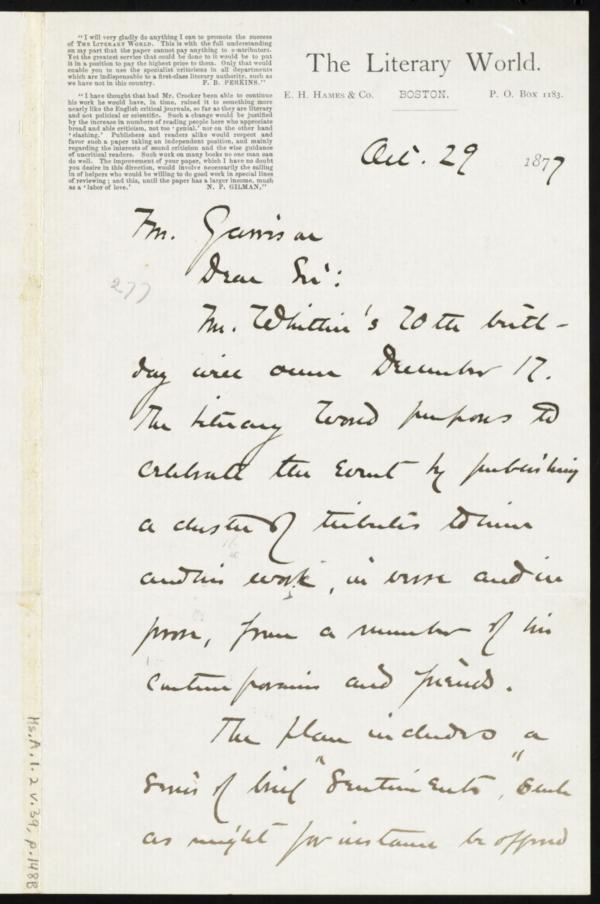 "I will very gladly do anything I can to promote the success
of THE LITERARY WORLD. This is with the full understanding
on my part that the paper cannot pay anything to contributors.
Yet the greatest service that could be done to it would be to put
it in a position to pay the highest price to them. Only that would
enable you to use the specialist criticisms in all departments
which are indispensable to a first-class literary authority, such as
we have not in this country. F. B. PERKINS."
"I have thought that had Mr. Crocker been able to continue
his work he would have, in time, raised it to something more
nearly like the English critical journals, so far as they are literary
and not political or scientific. Such a change would be justified
by the increase in numbers of reading people here who appreciate
broad and able criticism, not too 'genial,' nor on the other hand
'slashing.' Publishers and readers alike would respect and
favor such a paper taking an independent position, and mainly
regarding the interests of sound criticism and the wise guidance
of uncritical readers. Such work on many books no one man can
do well. The improvement of your paper, which I have no doubt
you desire in this direction, would involve necessarily the calling
in of helpers who would be willing to do good work in special lines
of reviewing; and this, until the paper has a larger income, much
as a 'labor of love.' N. P. GILMAN."
The Literary World.
E. H. HAMES & CO. BOSTON. P. O. BOX 1183.
Oct. 29 1877
Mr. Garrison
Dear Sir:
277
Mr. Whittier's 70th birth-
day will occur December 17.
The Literary World purposes to
celebrate the event by publishing
a cluster of tributes to him
and his work, in verse and in
prose, from a number of his
contemporaries and friends.
The plan includes a
series of brief "Sentiments", such
as might for instance be offered
Ms.A.1.2 v.39, p.148B